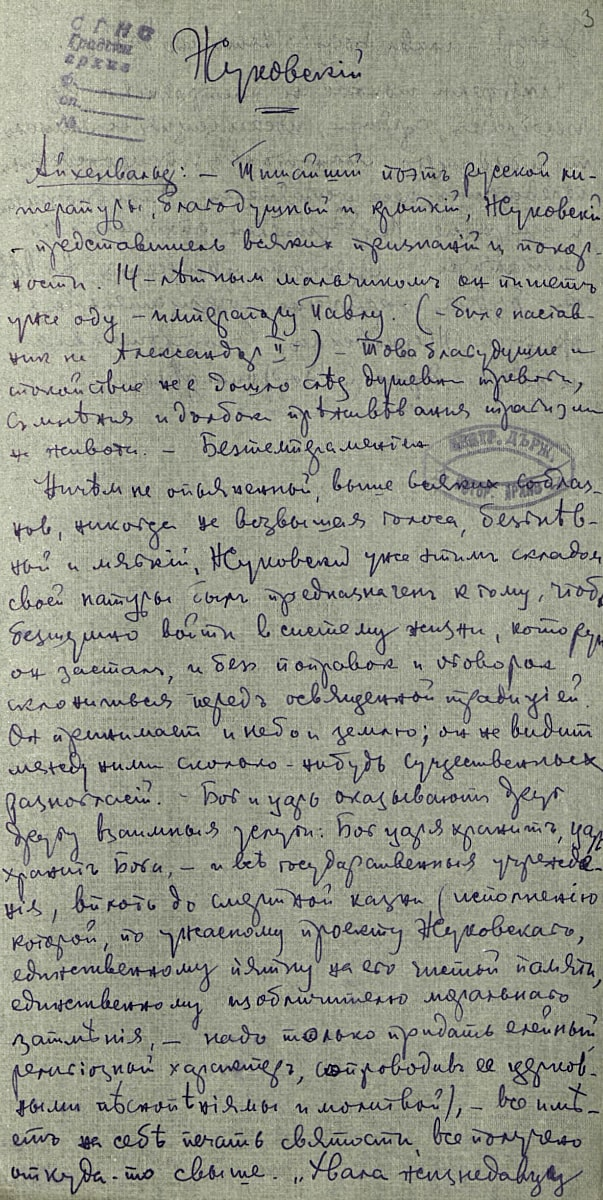 3
СГНС
Градски
архив
ф.
оп.
№
Жуковскій
Айхенвальд: – Тишайшій поэтъ русской ли-
тературы, благодушный и кроткій, Жуковскій
– представитель всяких признаній и покор-
ности. 14-лѣтным мальчикомъ он пишетъ
уже оду – императору Павлу. (– биле настав-
ник на Александра II –) – Това благодушие и
спокойствие не е дошло слѣд душевни тревоги,
съмнѣния и дълбоки прѣживѣвания
на живота. – Безтемпераментен
Ничѣм не опьяненный, выше всяких соблаз-
нов, никогда не возвышая голоса, безгнѣв-
ный и мягкій, Жуковскій уже этимъ складом
своей натуры былъ предназначенъ к тому, чтобы
безшумно войти в систему жизни, которую
он засталъ, и без поправок и оговорок
склониться передъ освященной традиціей.
Он принимает и небо и землю; он не видит
между ними сколько-нибудь существенных
разногласій. – Бог и царь оказываютъ друг
другу взаимныя услуги: Бог царя хранитъ, царь
хранитъ Бога, – и всѣ государственныя учрежде-
нія, вплоть до смертной казни (исполненію
которой, по ужасному проекту Жуковскаго,
единственному пятну на его чистой памяти,
единственному изобличителю моральнаго
затмѣнія, – надо только придать елейный
религіозный характер, сопроводив ее церков-
ными пѣснопѣніями и молитвой), – все имѣ-
етъ на себѣ печать святости, все получено
откуда-то свыше. „Хвала жизнедавцу
ЦЕНТР. ДЪРЖ.
ИСТОР. АРХИВ